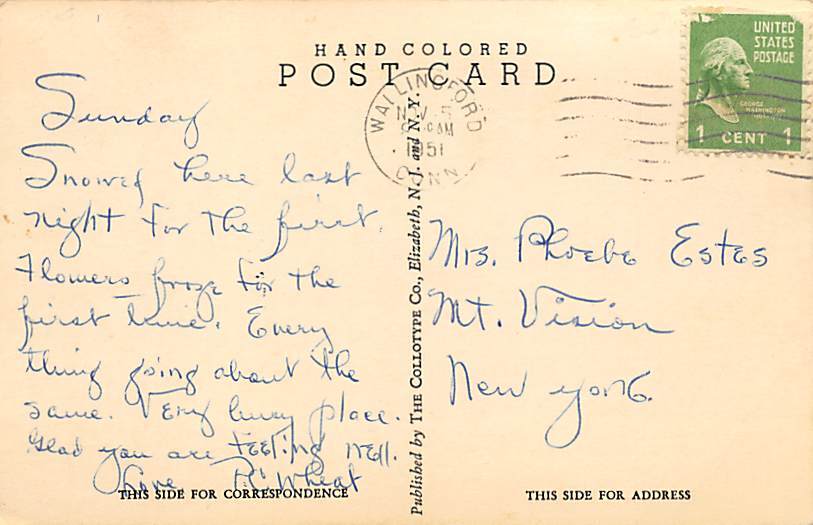 HAND COLORED
POST CARD
UNITED
STATES
POSTAGE
GEORGE
WASHINGTON
1 CENT 1
WALLINGFORD
NOV 5
AM
1951
CONN
Sunday
Snowed here last
night for the first.
Flowers froze for the
first time. Every
thing going about the
same. Very busy place.
Glad you are feeling well.
Love R. Wheat
Mrs. Phoebe Estes
Mt. Vision
New York.
Published by THE COLLOTYPE CO., Elizabeth, N. J. and N. Y.
THIS SIDE FOR CORRESPONDENCE
THIS SIDE FOR ADDRESS